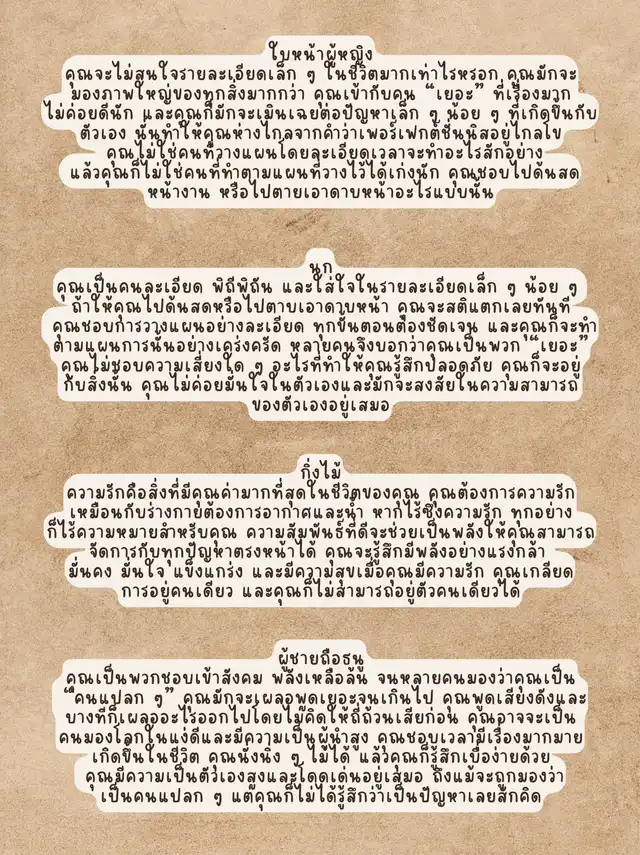 ใบหน้าผู้หญิง
คุณจะไม่สนใจรายละเอียดเล็ก ๆ ในชีวิตมากเท่าไรหรอก คุณมักจะ
มองภาพใหญ่ของทุกสิ่งมากกว่า คุณเข้ากับคน “เยอะ” ที่เรื่องมาก
ไม่ค่อยดีนัก และคุณก็มักจะเมินเฉยต่อปัญหาเล็ก ๆ น้อย ๆ ที่เกิดขึ้นกับ
ตัวเอง นั่นทำให้คุณห่างไกลจากคำว่าเพอร์เฟกต์ชันนิสอยู่ไกลโข
คุณไม่ใช่คนที่วางแผนโดยละเอียดเวลาจะทำอะไรสักอย่าง
แล้วคุณก็ไม่ใช่คนที่ทำตามแผนที่วางไว้ได้เก่งนัก คุณชอบไปด้นสด
หน้างาน หรือไปตายเอาดาบหน้าอะไรแบบนั้น
นก
คุณเป็นคนละเอียด พิถีพิถัน และใส่ใจในรายละเอียดเล็ก ๆ น้อย ๆ
ถ้าให้คุณไปด้นสดหรือไปตาบเอาดาบหน้า คุณจะสติแตกเลยทันที
คุณชอบการวางแผนอย่างละเอียด ทุกขั้นตอนต้องชัดเจน และคุณก็จะทำ
ตามแผนการนั้นอย่างเคร่งครัด หลายคนจึงบอกว่าคุณเป็นพวก “เยอะ”
คุณไม่ชอบความเสี่ยงใด ๆ อะไรที่ทำให้คุณรู้สึกปลอดภัย คุณก็จะอยู่
กับสิ่งนั้น คุณไม่ค่อยมั่นใจในตัวเองและมักจะสงสัยในความสามารถ
ของตัวเองอยู่เสมอ
กิ่งไม้
ความรักคือสิ่งที่มีคุณค่ามากที่สุดในชีวิตของคุณ คุณต้องการความรัก
เหมือนกับร่างกายต้องการอากาศและน้ำ หากไร้ซึ่งความรัก ทุกอย่าง
ก็ไร้ความหมายสำหรับคุณ ความสัมพันธ์ที่ดีจะช่วยเป็นพลังให้คุณสามารถ
จัดการกับทุกปัญหาตรงหน้าได้ คุณจะรู้สึกมีพลังอย่างแรงกล้า
มั่นคง มั่นใจ แข็งแกร่ง และมีความสุขเมื่อคุณมีความรัก คุณเกลียด
การอยู่คนเดียว และคุณก็ไม่สามารถอยู่ตัวคนเดียวได้
ผู้ชายถือธนู
คุณเป็นพวกชอบเข้าสังคม พลังเหลือล้น จนหลายคนมองว่าคุณเป็น
“คนแปลก ๆ” คุณมักจะเผลอพูดเยอะจนเกินไป คุณพูดเสียงดังและ
บางทีก็เผลออะไรออกไปโดยไม่คิดให้ถี่ถ้วนเสียก่อน คุณอาจจะเป็น
คนมองโลกในแง่ดีและมีความเป็นผู้นำสูง คุณชอบเวลามีเรื่องมากมาย
เกิดขึ้นในชีวิต คุณนั่งนิ่ง ๆ ไม่ได้ แล้วคุณก็รู้สึกเบื่อง่ายด้วย
คุณมีความเป็นตัวเองสูงและโดดเด่นอยู่เสมอ ถึงแม้จะถูกมองว่า
เป็นคนแปลก ๆ แต่คุณก็ไม่ได้รู้สึกว่าเป็นปัญหาเลยสักคิด